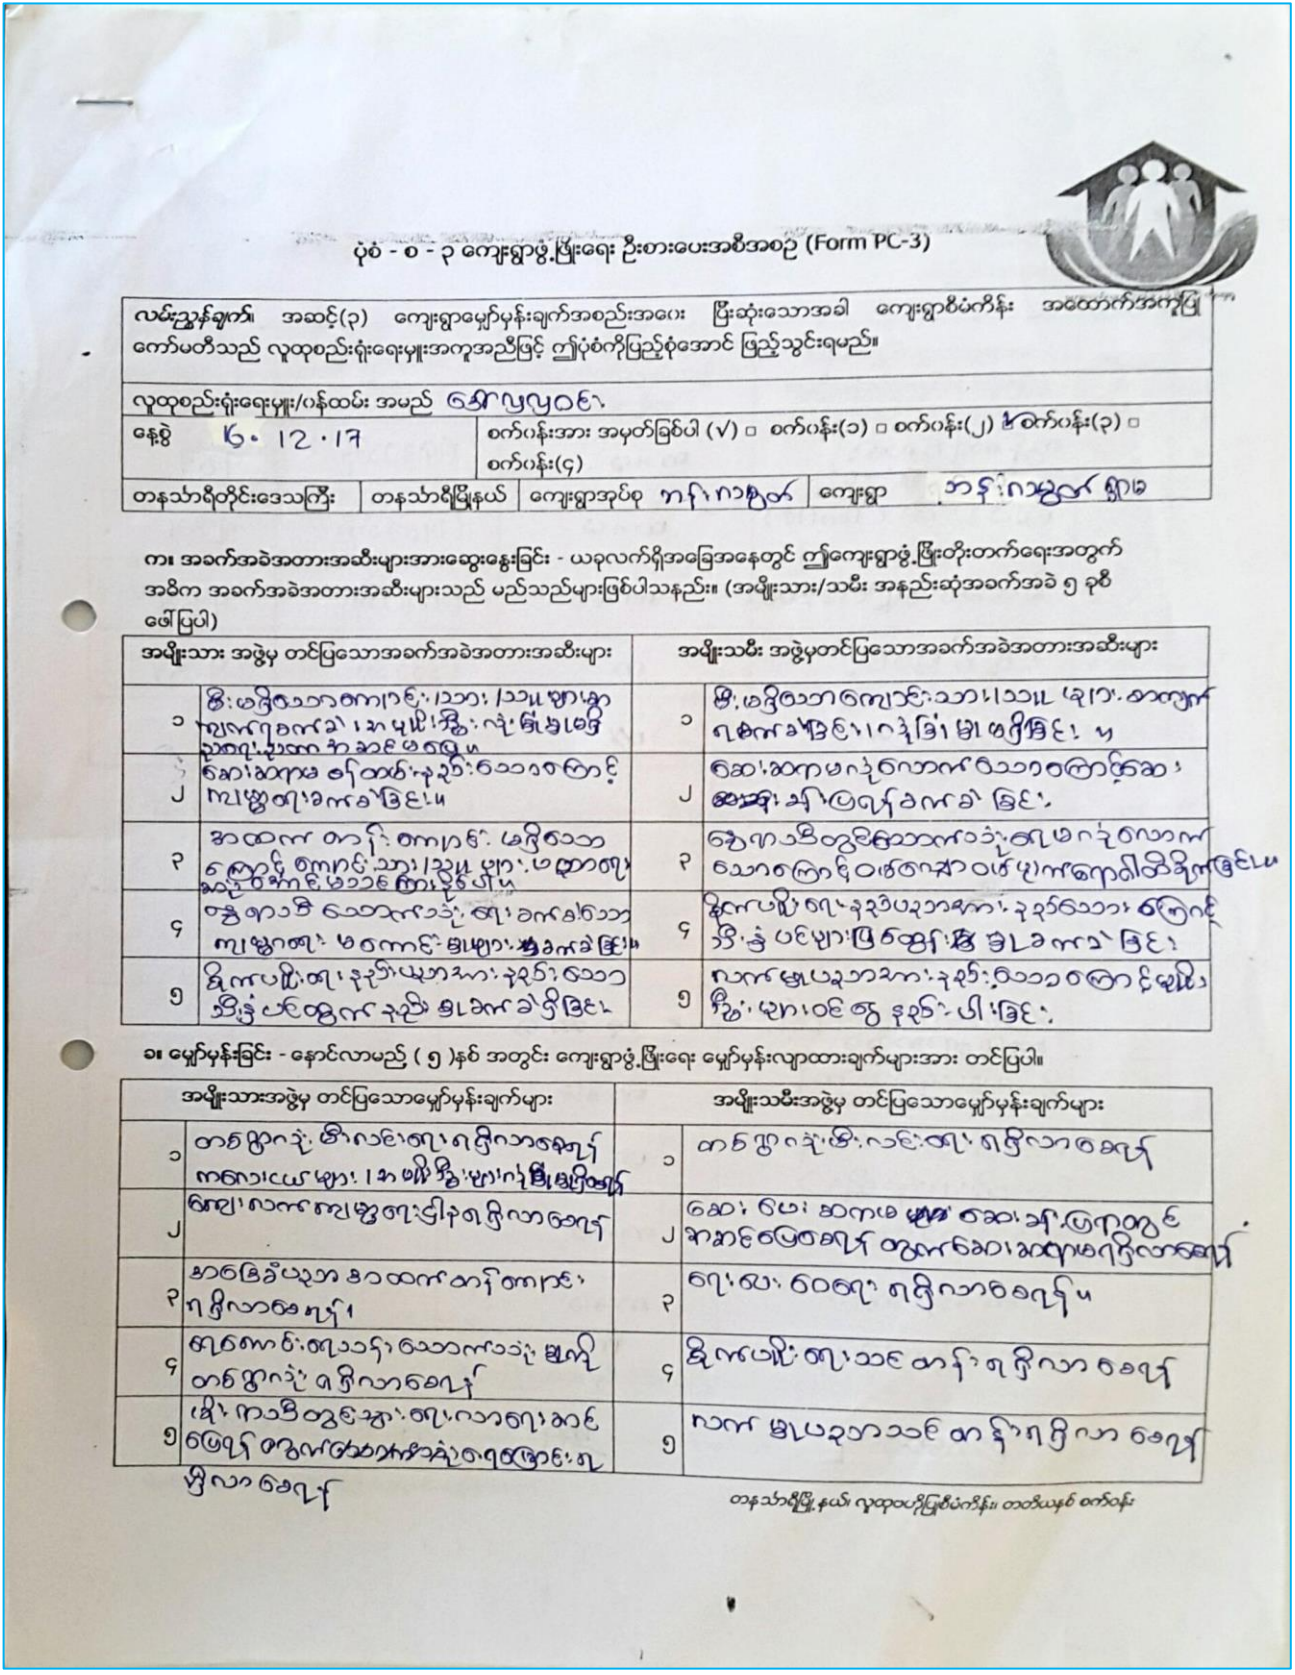 ပုံစံ - စ - ၃ ကျေးရွာဖွံ့ဖြိုးရေး ဦးစားပေးအစီအစဉ် (Form PC-3)
လမ်းညွှန်ချက်၊ အဆင့်(၃) ကျေးရွာမျှော်မှန်းချက်အစည်းအဝေး ပြီးဆုံးသောအခါ ကျေးရွာစီမံကိန်း အထောက်အကူပြု
ကော်မတီသည် လူထုစည်းရုံးရေးမှူးအကူအညီဖြင့် ဤပုံစံကိုပြည့်စုံအောင် ဖြည့်သွင်းရမည်။
လူထုစည်းရုံးရေးမှူး/ဝန်ထမ်း အမည် ဒေါ်လှလှဝင်း
နေ့စွဲ 16.12.17 စက်ဝန်းအား အမှတ်ခြစ်ပါ (√) □ စက်ဝန်း(၁) □ စက်ဝန်း(၂) ☑ စက်ဝန်း(၃) □
စက်ဝန်း(၄)
တနင်္သာရီတိုင်းဒေသကြီး တနင်္သာရီမြို့နယ် ကျေးရွာအုပ်စု ကျေးရွာ
က။ အခက်အခဲအတားအဆီးများအားဆွေးနွေးခြင်း - ယခုလက်ရှိအခြေအနေတွင် ဤကျေးရွာဖွံ့ဖြိုးတိုးတက်ရေးအတွက်
အဓိက အခက်အခဲအတားအဆီးများသည် မည်သည်များဖြစ်ပါသနည်း။ (အမျိုးသား/သမီး အနည်းဆုံးအခက်အခဲ ၅ ခုစီ
ဖေါ်ပြပါ)
အမျိုးသား အဖွဲ့မှ တင်ပြသောအခက်အခဲအတားအဆီးများ အမျိုးသမီး အဖွဲ့မှတင်ပြသောအခက်အခဲအတားအဆီးများ
၁ မီးမရှိသောကျောင်းသား/သူများစာ
ကျက်ရခက်ခဲ
၁ မီးမရှိသောကျောင်းသား/သူ များ စာကျက်
ရခက်ခဲခြင်း၊ လုံခြုံမှုမရှိခြင်း ။
၂ ဆေးဆရာမ ဝန်ထမ်းနည်းသောကြောင့်
ကျန်းမာရေးခက်ခဲခြင်း။
၂ ဆေးဆရာမမလုံလောက်သောကြောင့်ဆေး
ခန်းပြရန်ခက်ခဲခြင်း
၃ အထက်တန်းကျောင်း မရှိသော
ကြောင့် ကျောင်းသား/သူ များ ပညာရေး
၃ နွေရာသီတွင်သောက်သုံးရေမလုံလောက်
သောကြောင့်ဝမ်းလျှောဝမ်းပျက်ရောဂါထိခိုက်ခြင်း။
၄ နွေရာသီ သောက်သုံးရေခက်ခဲသော
ကျန်းမာရေး မကောင်းမှုများ ခက်ခဲခြင်း။
၄ စိုက်ပျိုးရေးနည်းပညာအားနည်းသော ကြောင့်
သီးနှံပင်များဖြစ်ထွန်းမှုခက်ခဲခြင်း
၅ စိုက်ပျိုးရေးနည်းပညာအားနည်းသော
သီးနှံပင်ထွက်နည်းမှုခက်ခဲရှိခြင်း
၅ လက်မှုပညာအားနည်းသောကြောင့်မျိုး
များဝင်ငွေနည်းပါးခြင်း
ခ။ မျှော်မှန်းခြင်း - နောင်လာမည့် ( ၅ )နှစ် အတွင်း ကျေးရွာဖွံ့ဖြိုးရေး မျှော်မှန်းလျာထားချက်များအား တင်ပြပါ။
အမျိုးသားအဖွဲ့မှ တင်ပြသောမျှော်မှန်းချက်များ အမျိုးသမီးအဖွဲ့မှ တင်ပြသောမျှော်မှန်းချက်များ
၁ တစ်ရွာလုံးမီးလင်းရေး ရရှိလာစေရန်
ကလေးငယ်များ၊ အမျိုးသမီးများလုံခြုံမှုရှိစေရန်
၁ တစ်ရွာလုံးမီးလင်းရေး ရရှိလာစေရန်
၂ ကျေးလက်ကျန်းမာရေးဌါနရရှိလာစေရန်
၂ ဆေးပေး ဆရာမ ဆေးခန်းပြရာတွင်
အဆင်ပြေစေရန် တွက်ဆေးဆရာမရရှိလာစေရန်
၃ အခြေခံပညာအထက်တန်းကျောင်း
ရရှိလာစေရန်၊
၃ ရေပေးဝေရေး ရရှိလာစေရန်။
၄ ရေကောင်းရေသန့် သောက်သုံးမှုကို
တစ်ရွာလုံး ရရှိလာစေရန်
၄ စိုက်ပျိုးရေးသင်တန်း ရရှိလာစေရန်
၅ မိုးရာသီတွင်သွားရေးလာရေးဆင်
ပြေရန်
ရှိလာစေရန်
၅ လက်မှုပညာသင်တန်းရရှိလာစေရန်
တနင်္သာရီမြို့နယ်၊ လူထုဗဟိုပြုစီမံကိန်း၊ တတိယနှစ် စက်ဝန်း